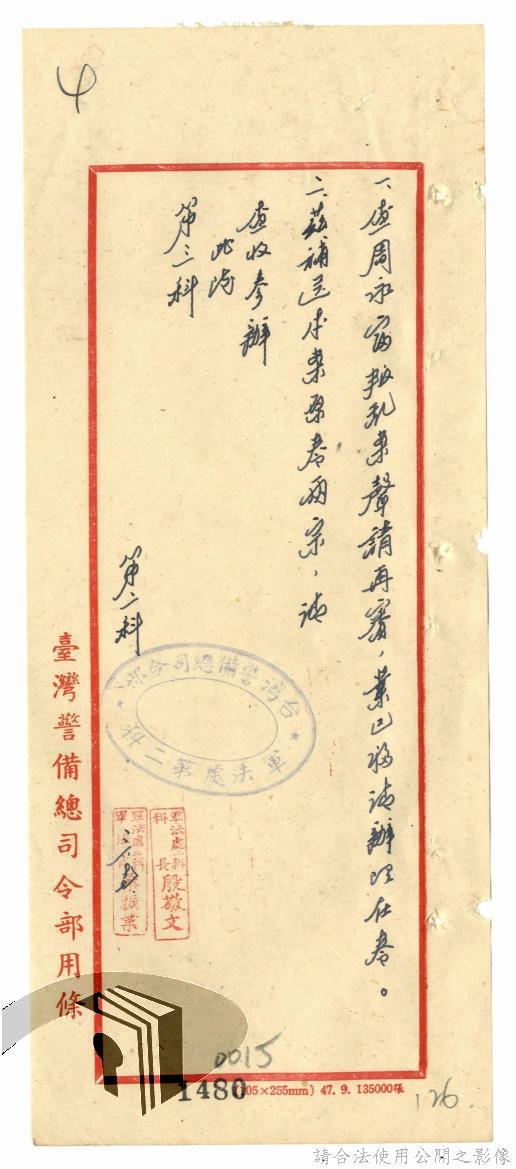 4
一、查周永富叛乱案聲請再審，業已移請辦理在卷。
二、茲補送本案原卷兩宗，請
查收參辦
此致
第三科
第二科
台灣警備總司令部
軍法處第二科
軍法處二科
科長 殷敬文
軍法處二科
振業
臺灣警備總司令部用條
0015
1480
(105×255mm) 47. 9. 135000年
126
請合法使用公開之影像